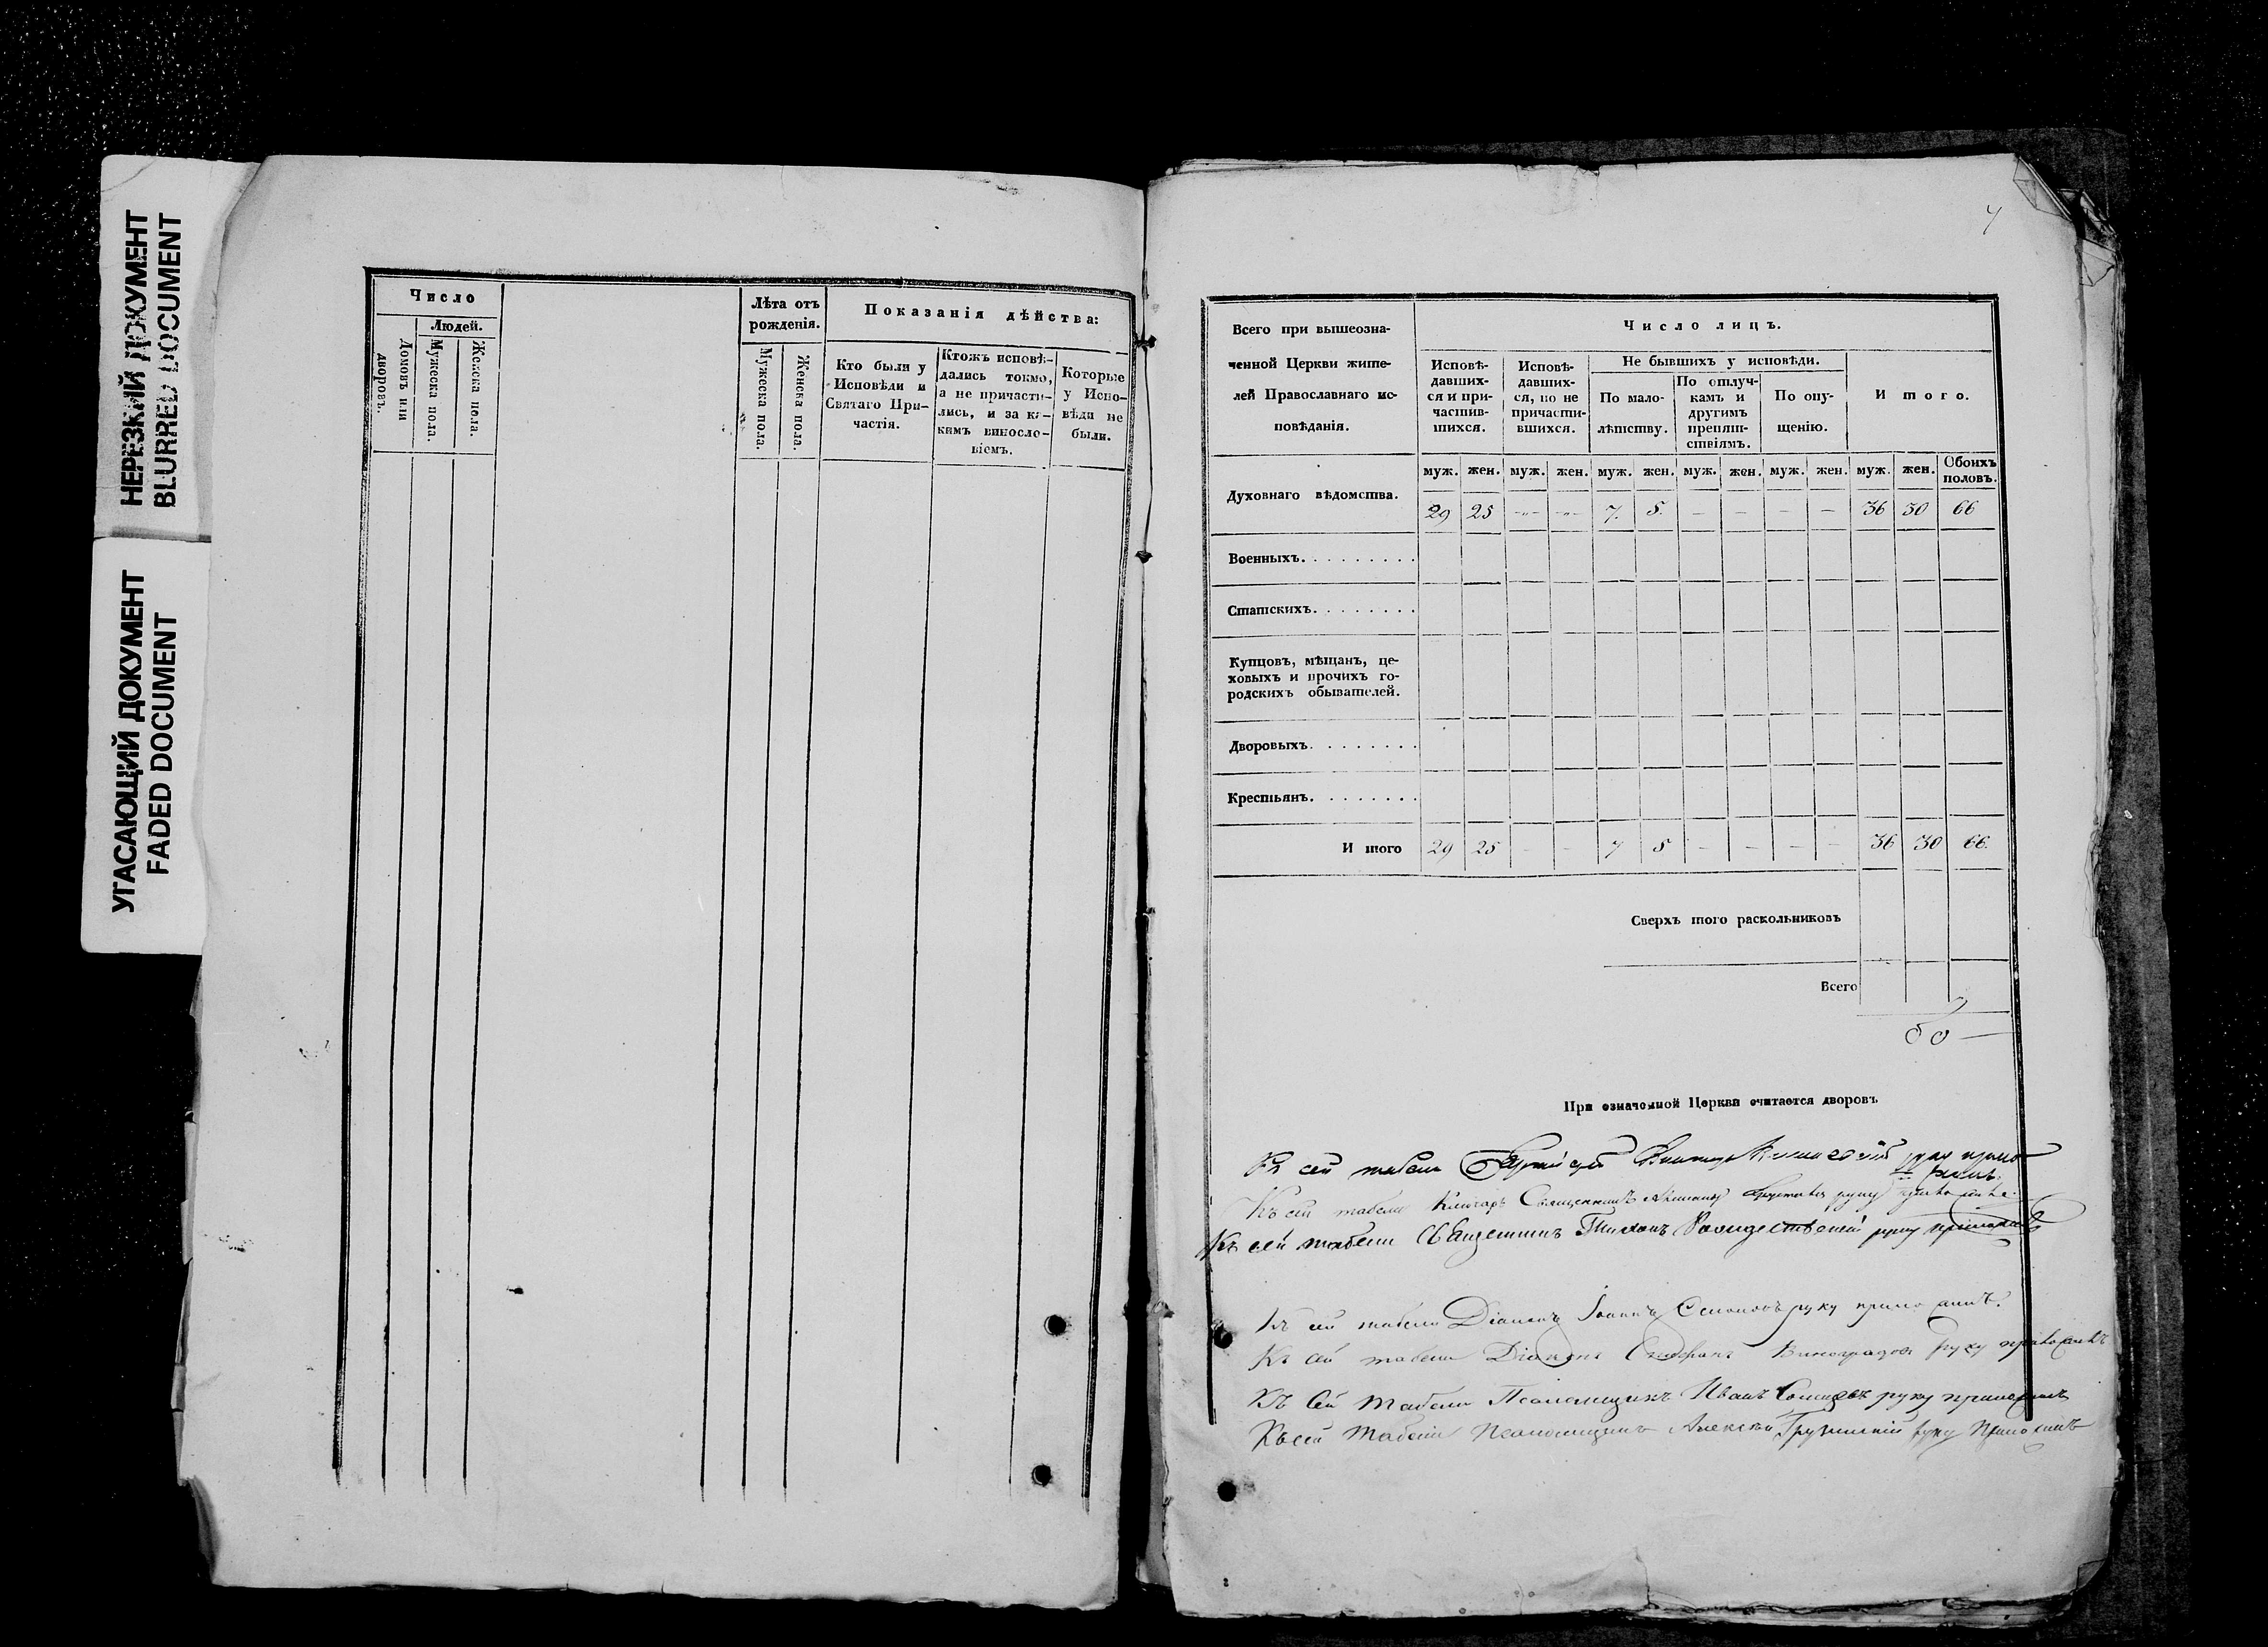 НЕРЕЗКИЙ ДОКУМЕНТ
BLURRED DOCUMENT
УГАСАЮЩИЙ ДОКУМЕНТ
FADED DOCUMENT
Число
Людей.
Домовъ или дворовъ.
Мужеска пола.
Женска пола.
Лѣта отъ
рожденія.
Мужеска пола.
Женска пола.
Показанія дѣйства:
Кто были у
Исповѣди и
Святаго При-
частія.
Ктожъ исповѣ-
дались токмо,
а не причасти-
лись, и за ка-
кимъ виносло-
віемъ.
Которые
у Испо-
вѣди не
были.
7
Всего при вышеозна-
ченной Церкви жите-
лей Православнаго ис-
повѣданія.
Число лицъ.
Исповѣ-
давших-
ся и при-
частив-
шихся.
Исповѣ-
давших-
ся, но не
причасти-
вшихся.
Не бывшихъ у исповѣди.
По мало-
лѣтству.
По отлуч-
камъ и
другимъ
препят-
ствіямъ.
По опу-
щенію.
И того.
муж. жен. муж. жен. муж. жен. муж. жен. муж. жен. муж. жен. Обоихъ половъ.
Духовнаго вѣдомства. 29 25 -„- -„- 7. 5. — — — — 36 30 66
Военныхъ.........
Статскихъ........
Купцовъ, мѣщанъ, це-
ховыхъ и прочихъ го-
родскихъ обывателей.
Дворовыхъ........
Крестьянъ........
И того 29 25 - - 7 5 - - - - 36 30 66.
Сверхъ того раскольниковъ
Всего
При означенной Церкви считается дворовъ
Къ сей табели
Къ сей табели Ключарь Священникъ руку приложилъ
Къ сей табели Священникъ Тихонъ Рождественскій руку приложилъ
Къ сей табели Діаконъ Іоаннъ руку приложилъ.
Къ сей табели Діаконъ Виноградовъ руку приложилъ
Къ сей табели Псаломщикъ Иванъ руку приложилъ
Къ сей табели Псаломщикъ Алексѣй Грузинскій руку приложилъ